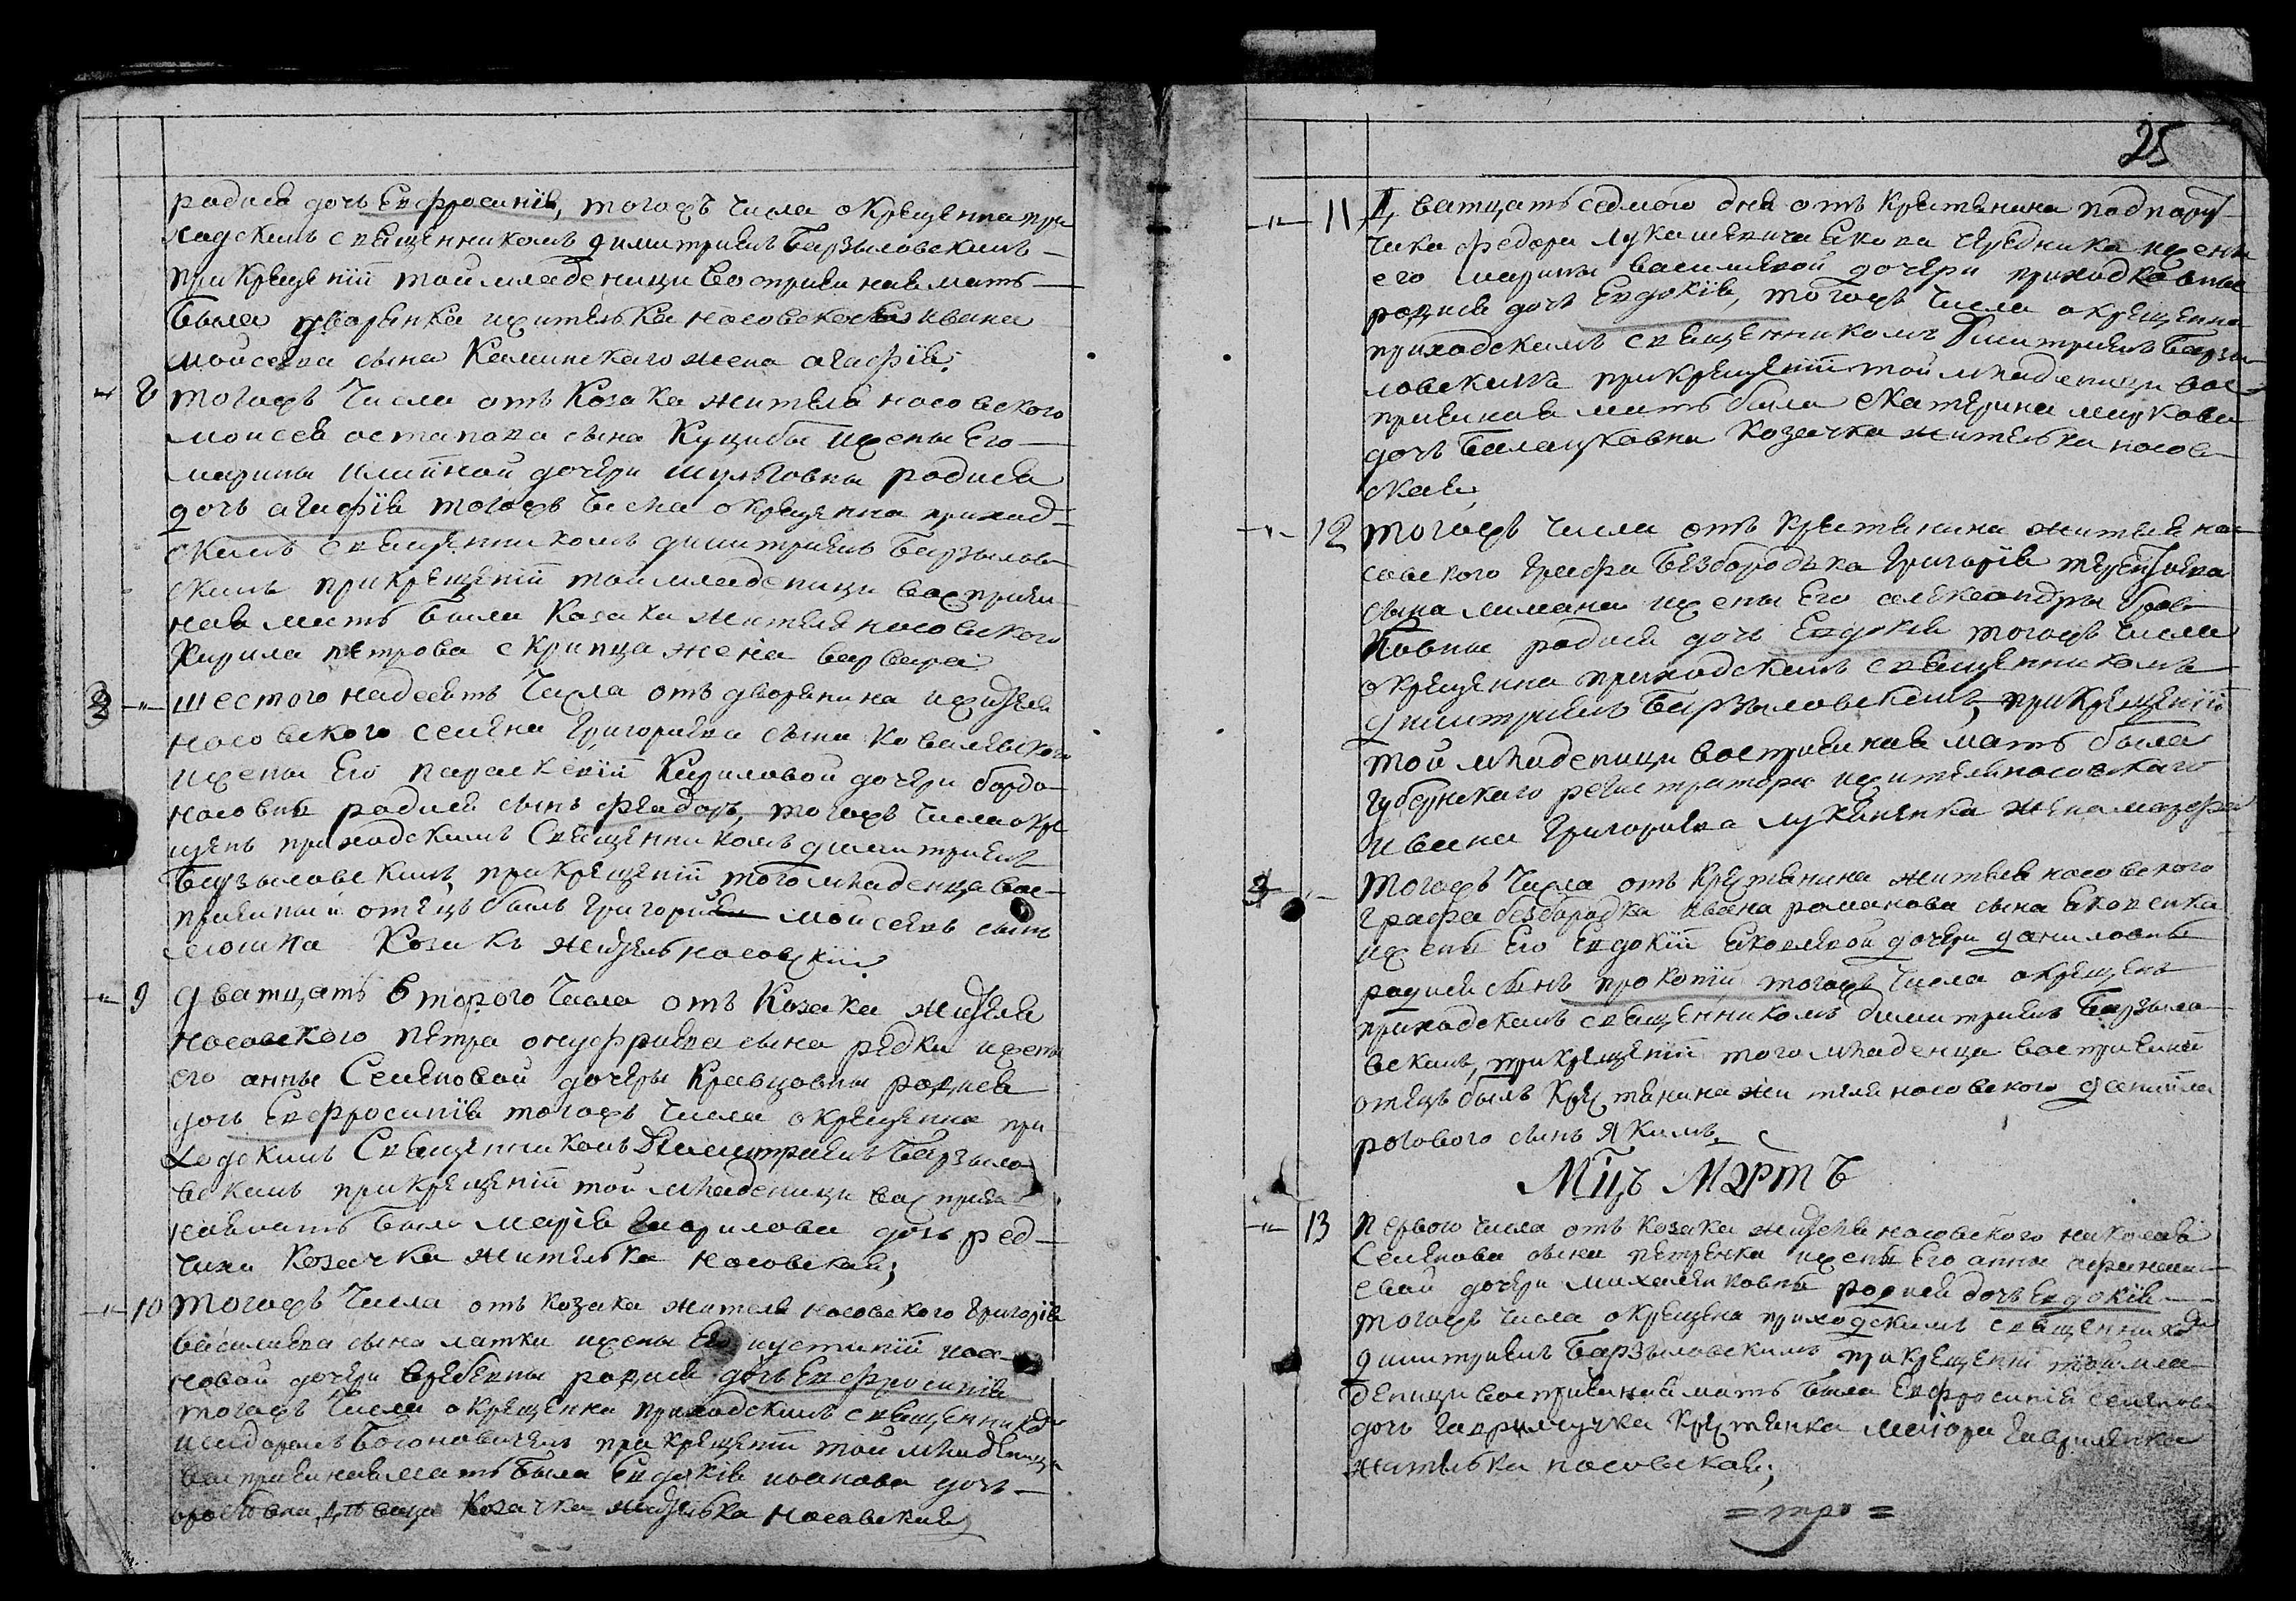 родися дочь Евфросинія, тогожъ числа окрещенна при
ходскимъ священникомъ димитриемъ Барзыловскимъ
при крещеніи той младеници восприемная мать
была дворянка жителька носовская ивана
мойсеева сына Каминскаго жена агафія;
8 тогожъ числа отъ Козака жителя носовского
моисея остапова сына Куцибы и жены Его
марины илииной дочери шулговны родися
дочь агафія тогожъ числа окрещенна приход-
скимъ священникомъ димитриемъ Барзылов
скимъ при крещеніи той младеници восприем
ная мать была Казака жителя носовского
Кирила петрова скрипца жена варвара
шестого надесять числа отъ дворянина и жителя
носовского семена Григориева сына Ковалевского
и жены Его параскевіи Кириловой дочери бордо
носовны родися сынъ феодоръ, тогожъ числа окре
щенъ приходскимъ священникомъ димитриемъ
Барзыловскимъ, при крещеніи того младенца вос-
приемный отецъ былъ Григорий мойсеевъ сынъ
Козакъ житель носовскій
9 дватцать второго числа отъ Козака жителя
носовского петра онуфриева сына редки и жены
его анны Семеновой дочери Кравцовны родися
дочь Евфросинія тогожъ числа окрещенна при
ходскимъ Священникомъ Димитриемъ Барзыло
вскимъ при крещеніи той младеници восприем
ная мать была марія Гаврилова дочь ред-
чиха козачка жителька носовская;
10 тогожъ числа отъ козака жителя носовского Григорія
василиева сына латки и жены Его иустиніи иоа-
новой дочери родися дочь Евфросинія
тогожъ числа окрещенна приходскимъ священником
исидоромъ при крещеніи той младеници
восприемная мать была Евдокія иоанова дочь
вдовица Козачка жителька носовская
25
11 Дватцать седмого дня отъ крестянина подпору-
чика федора лукашевича Якова чередника и жены
его марины василиевой дочери приходковны
родися дочь Евдокія, тогожъ числа окрещенна
приходскимъ священникомъ Димитриемъ Барзы
ловскимъ при крещеніи той младеници вос-
приемная мать была Екатерина маркова
дочь козачка жителька носов
ская;
12 тогожъ числа отъ крестянина жителя но
совского графа Безбородька Григорія терентіева
сына лимана и жены Его александры
ковны родися дочь Евдокія тогожъ числа
окрещенна приходскимъ священникомъ
димитриемъ Барзыловскимъ, при крещеніи
той младеници восприемная мать была
губернского регистратора и жителя носовского
ивана Григориева лукиенка жена
тогожъ числа отъ Крестянина жителя носовского
графа безбородка ивана романова сына Яковенка
и жены Его Евдокіи Яковлевой дочери даниловны
родися сынъ прокопій тогожъ числа окрещенъ
приходскимъ священникомъ димитриемъ Барзыло
вскимъ, при крещеніи того младенца восприемный
отецъ былъ крестянина жителя носовского
рогового сынъ Якимъ
Мцъ Мартъ
13 первого числа отъ козака жителя носовского николая
Семенова сына петренка и жены Его анны афанаси
евой дочери михаленковны родися дочь Евдокія
тогожъ числа окрещена приходскимъ священником
димитриемъ Барзыловскимъ при крещеніи той мла
деници восприемная мать была Евфросинія семенова
дочь крестянка маіора Гавриленка
жителька носовская;